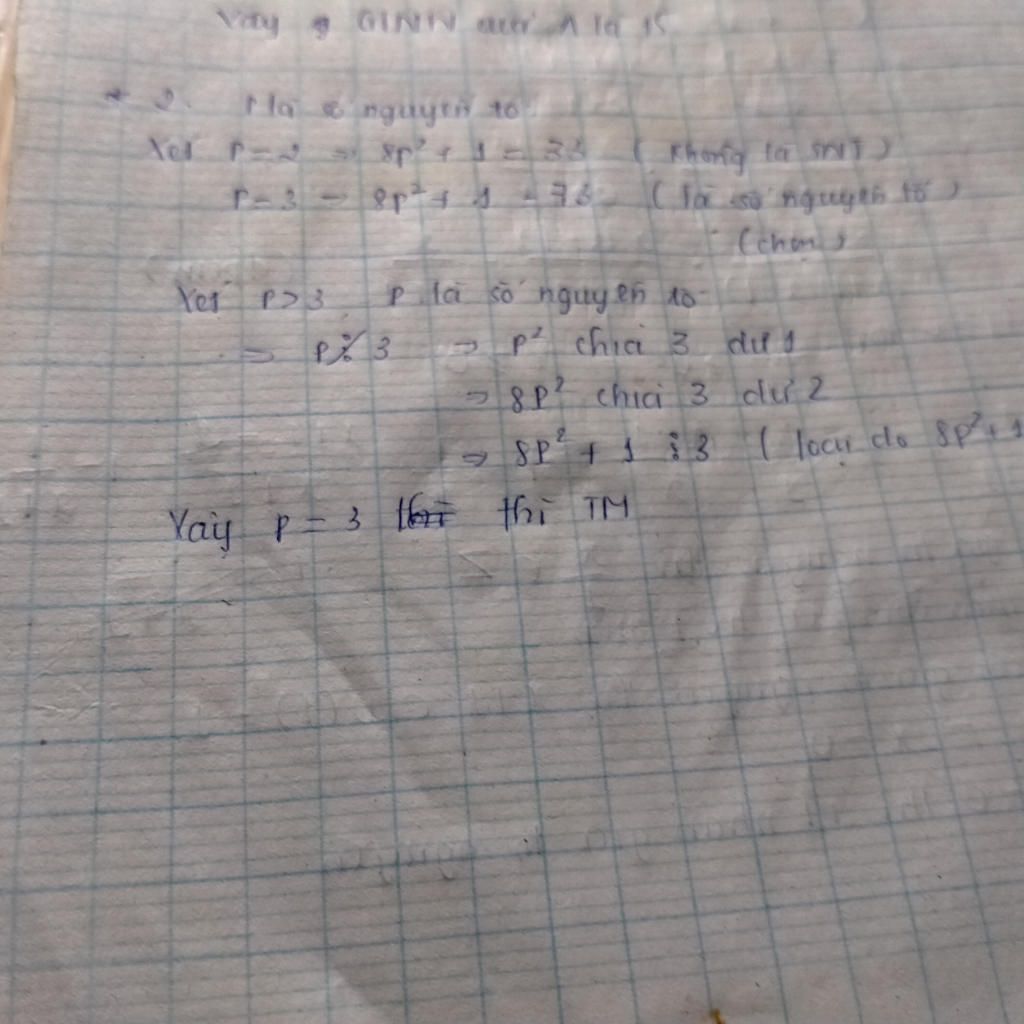 Vậy GTNN của A là 15
* 2. P là số nguyên tố
Xét P = 2 => 8p² + 1 = 33 ( Không là SNT )
P = 3 => 8p² + 1 = 73 ( là số nguyên tố )
(chọn)
Xét P > 3 P là số nguyên tố
=> P⋮̸ 3 => P² chia 3 dư 1
=> 8P² chia 3 dư 2
=> 8P² + 1 ⋮ 3 ( loại do 8p² + 1
Vậy P = 3 thì TM